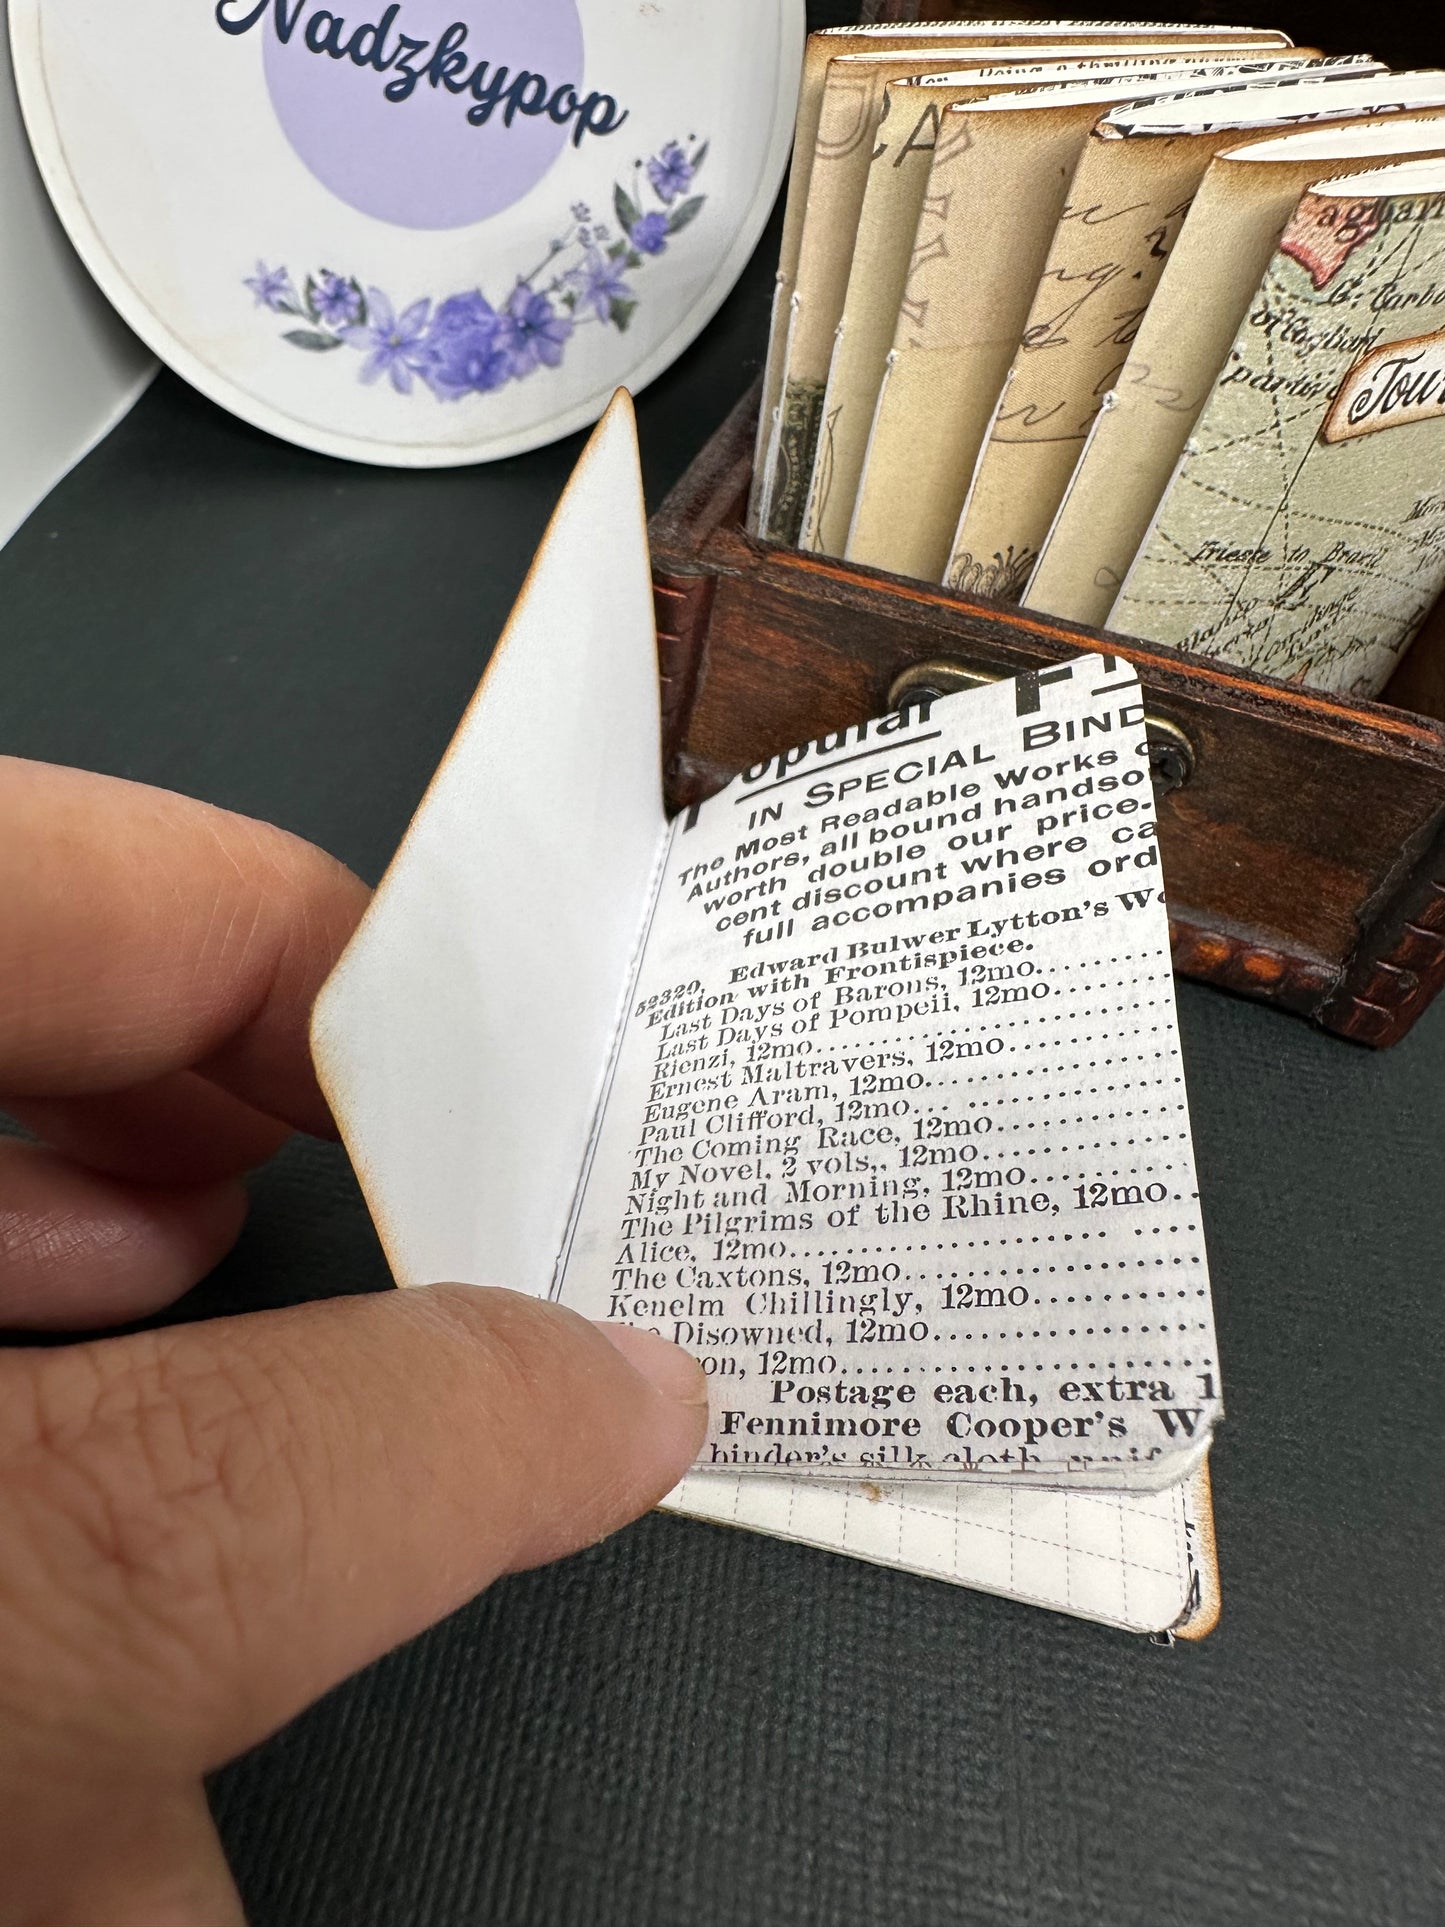 Nadzkypop
Being a thrilling
CA
agliari
G. Carbo
of Cagliari
parti
Tour
Trieste to Brazil
Popular
IN SPECIAL BIND
The Most Readable Works
Authors, all bound handso
worth double our price.
cent discount where ca
full accompanies ord
52320. Edward Bulwer Lytton's Wo
Edition with Frontispiece.
Last Days of Barons, 12mo.........
Last Days of Pompeii, 12mo.........
Rienzi, 12mo..........................
Ernest Maltravers, 12mo............
Eugene Aram, 12mo..................
Paul Clifford, 12mo... ..............
The Coming Race, 12mo............
My Novel, 2 vols,, 12mo.............
Night and Morning, 12mo..........
The Pilgrims of the Rhine, 12mo..
Alice, 12mo........................ ....
The Caxtons, 12mo...................
Kenelm Chillingly, 12mo..........
Disowned, 12mo.................
on, 12mo........................
Postage each, extra 1
Fennimore Cooper's W
binder's silk cloth, unif